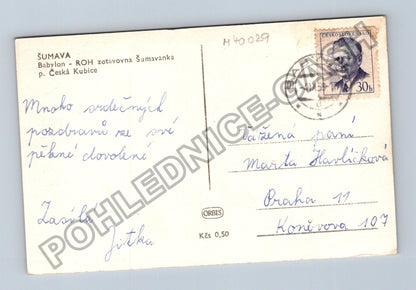 ŠUMAVA
Babylon - ROH zotavovna Šumavanka
p. Česká Kubice
M40029
ČESKOSLOVENSKO
30h
Mnoho srdečných
pozdravů ze své
pěkné dovolené
Zasílá
Jitka
Vážená paní
Marta Havlíčková
Praha 11
Koněvova 107
ORBIS
Kčs 0,50
POHLEDNICE-ONLINE